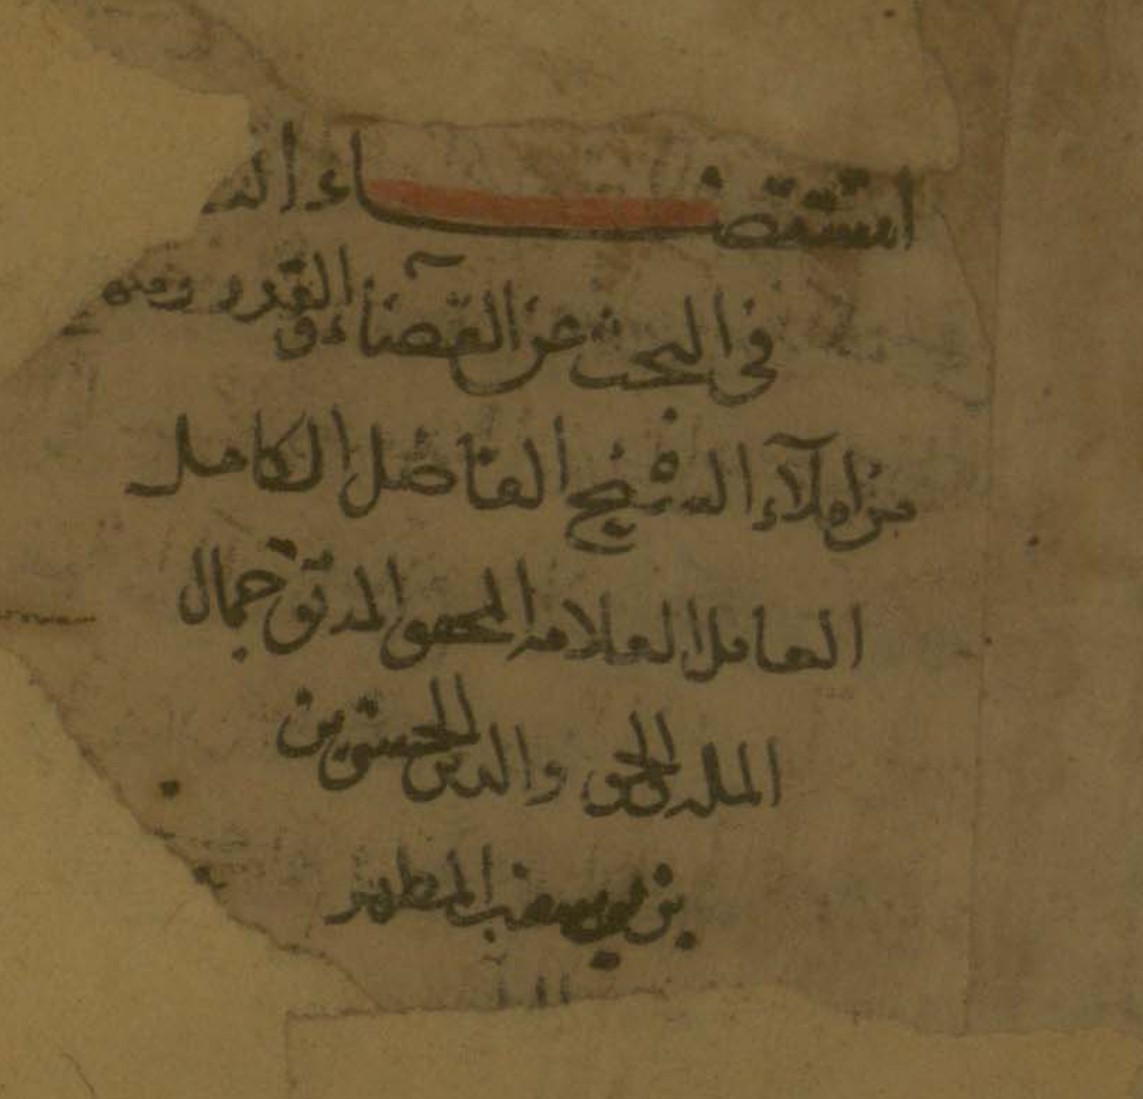 استقصاء
في البحث عن القضاء والقدر
من املآء الشيخ الفاضل الكامل
العامل العلامه المحقق المدقق جمال
المله والحق والدين الحسن بن
بن يوسف بن المطهر